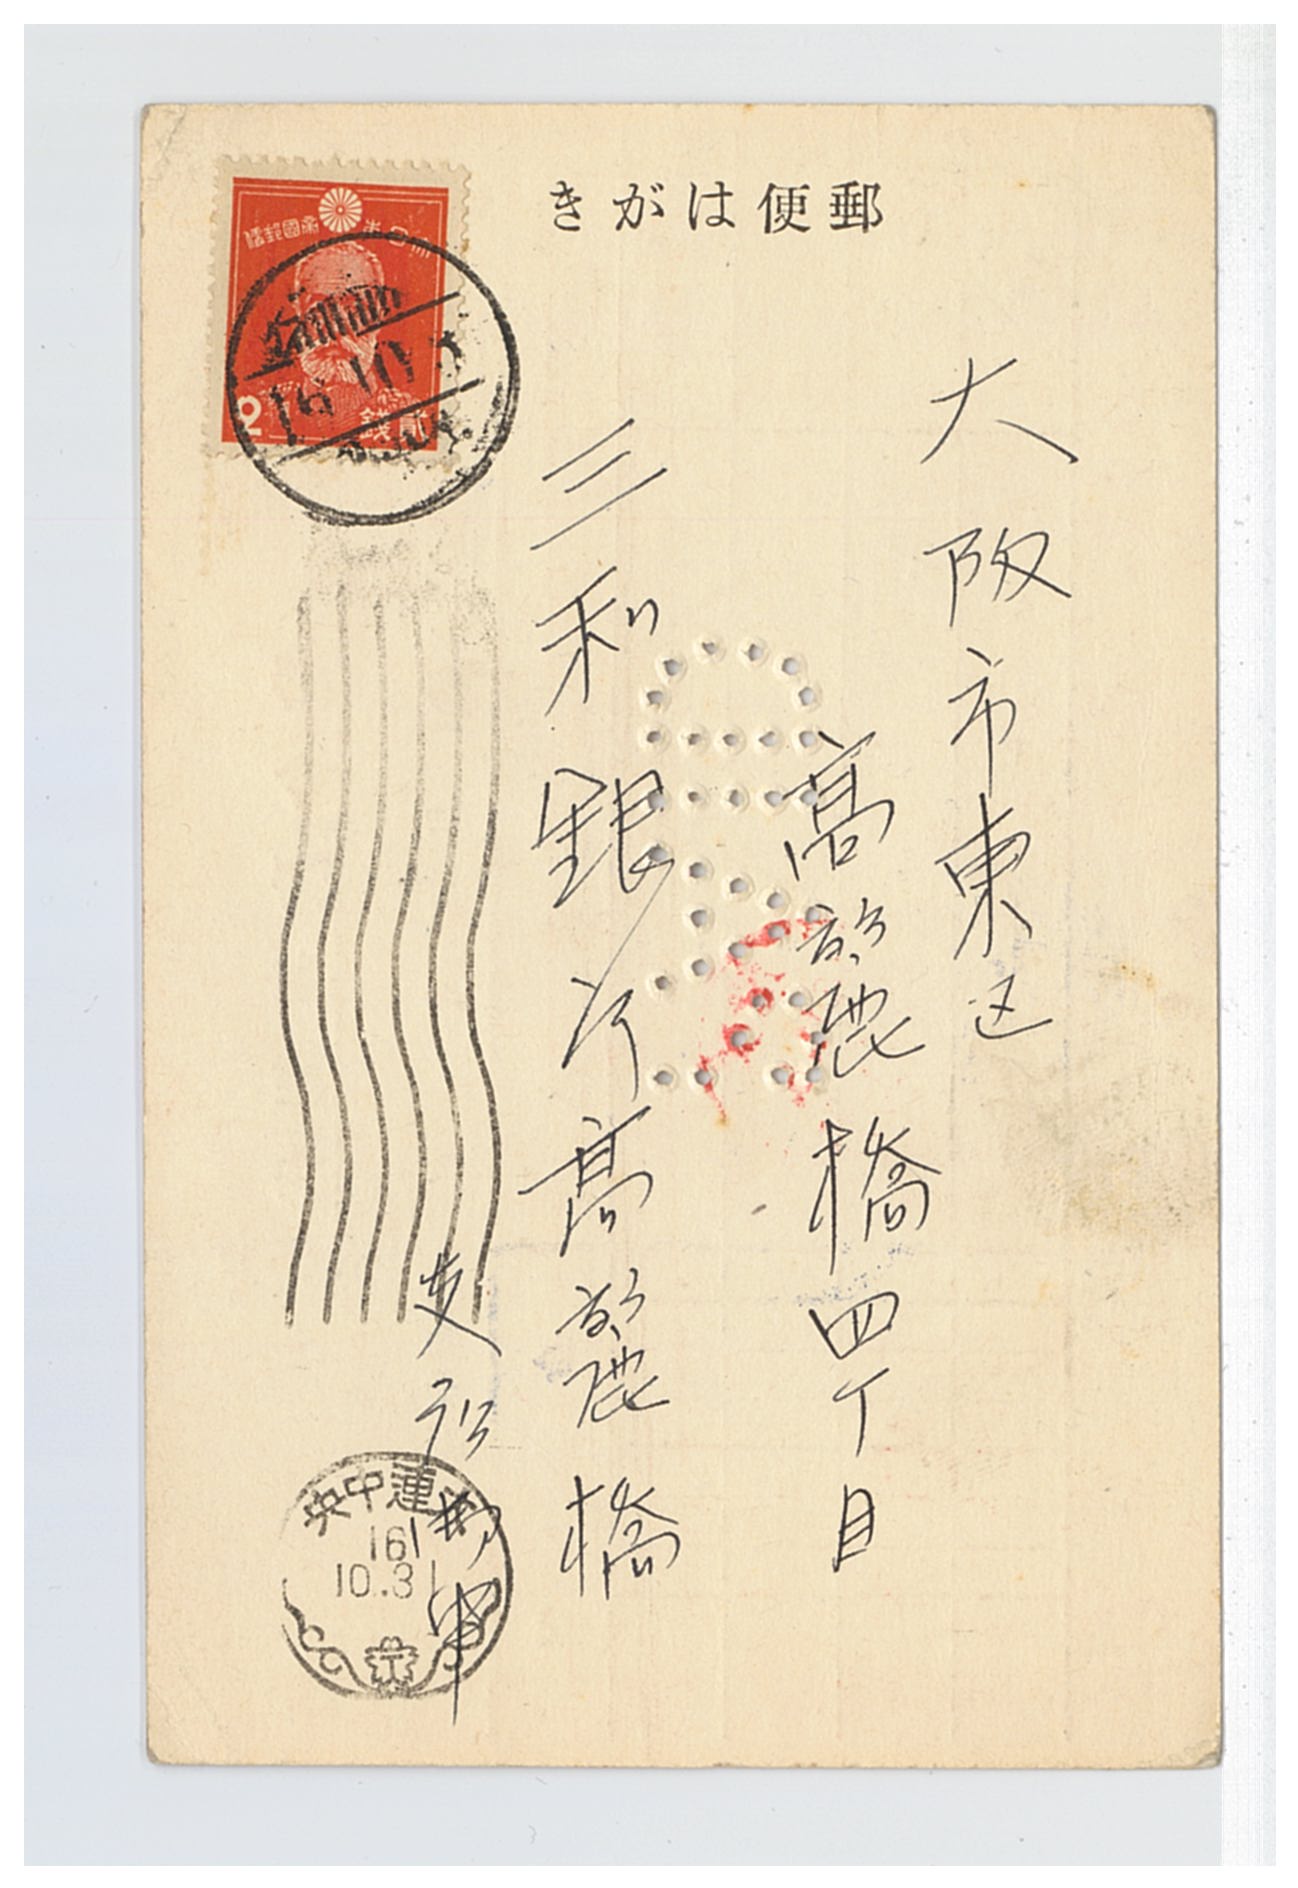 郵便はがき
大阪市東区
高麗橋四丁目
三和銀行高麗橋
支店御中
大日本帝國郵便
2
貮錢
16.10.3
大連中央
16
10.31